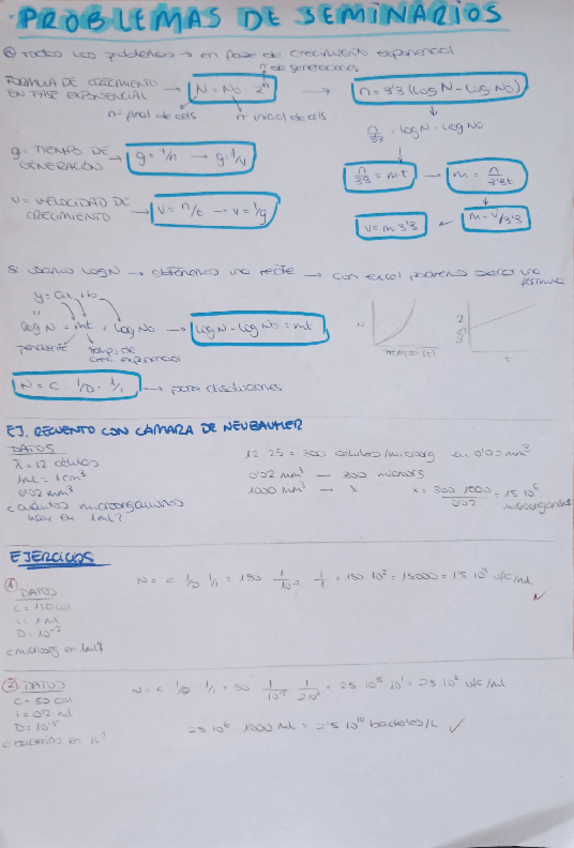 PROBLEMAS DE SEMINARIOS
todos los problemas → en fase de crecimiento exponencial
FORMULA DE CRECIMIENTO EN FASE EXPONENCIAL → N = N₀ · 2ⁿ → n = 3'3 (log N - log N₀)
nº de generaciones
nº final de cels
nº inicial de cels
n/3'3 = log N - log N₀
g = TIEMPO DE GENERACIÓN → g = t/n → g = 1/v
n/3'3 = mt → m = n/3'3t
V = VELOCIDAD DE CRECIMIENTO → V = n/t → V = 1/g
V = m 3'3 ← m = V/3'3
Si usamos log N → obtenemos una recta → con excel podremos sacar una fórmula
y = ax + b
log N = mt + log N₀ → log N - log N₀ = mt
pendiente
tiempo de crec exponencial
N
TIEMPO (t)
t
N = C · 1/D · 1/i → para disoluciones
EJ. RECUENTO CON CÁMARA DE NEUBAUER
DATOS
x̄ = 12 células
1ml = 1cm³
0'02 mm³
¿cuántos microorganismos hay en 1ml?
12 · 25 = 300 células/microorg en 0'02 mm³
0'02 mm³ — 300 microorg
1000 mm³ — x
x = 300 · 1000 / 0'02 = 15 · 10⁶ microorganismos
EJERCICIOS
① DATOS
C = 150 col
i = 1 ml
D = 10⁻²
¿microorg en 1ml?
N = C · 1/D · 1/i = 150 · 1/10⁻² · 1/1 = 150 · 10² = 15000 = 1'5 · 10⁴ ufc/ml
② DATOS
C = 50 col
i = 0'2 ml
D = 10⁻⁵
¿bacterias en 1L?
N = C · 1/D · 1/i = 50 · 1/10⁻⁵ · 1/2·10⁻¹ = 25 · 10⁵ · 10¹ = 25 · 10⁶ ufc/ml
25 · 10⁶ · 1000 ml = 2'5 · 10¹⁰ bacterias/L ✓